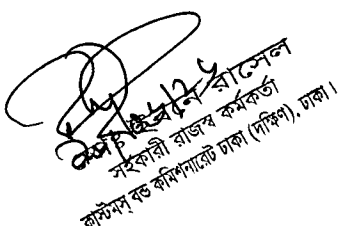 রাসেল
সহকারী রাজস্ব কর্মকর্তা
কাস্টমস্ বন্ড কমিশনারেট ঢাকা (দক্ষিণ), ঢাকা।